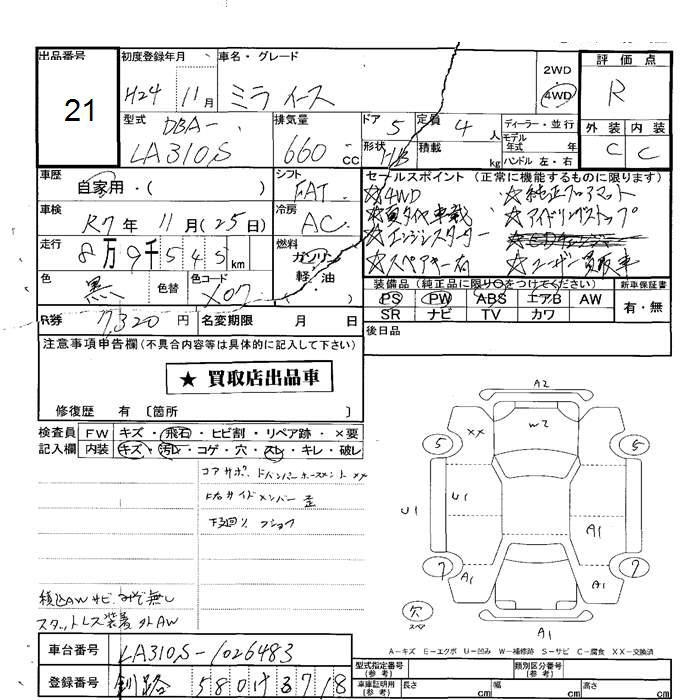 出品番号 初度登録年月 車名・グレード 評価点
21 H24 11月 ミラ イース 2WD 4WD R
型式 DBA- LA310S 排気量 660cc ドア 5 定員 4人 ディーラー・並行 外装 内装
形状 H/B 積載 kg モデル年式 年 ハンドル 左・右 C C
車歴 自家用・( ) シフト FAT セールスポイント (正常に機能するものに限ります)
☆4WD ☆純正フロアマット
車検 R7年 11月(25日) 冷房 AC ☆夏タイヤ車載 ☆アイドリングストップ
走行 8万9千545km 燃料 ガソリン 軽・油 ( ) ☆エンジンスターター
☆スペアキー有 ☆ユーザー買取車
色 黒 色替 色コード X07 装備品 (純正品に限り○をつけてください) 新車保証書
PS PW ABS エアB AW 有・無
R券 7,320円 名変期限 月 日 SR ナビ TV カワ
注意事項申告欄(不具合内容等は具体的に記入して下さい) 後日品
★買取店出品車
修復歴 有 〔箇所 〕
検査員 FW キズ・飛石・ヒビ割・リペア跡・×要
記入欄 内装 キズ・汚レ・コゲ・穴・スレ・キレ・破レ
コアサポ、 ××
サイドメンバー 歪
下廻り
積込AW サビ、 無し
スタットレス装着 外AW
A2
W2
××
5 5
U1 U1
A1
7 A1 A1 7
欠
スペア
A1
A-キズ E-エクボ U-凹み W-補修跡 S-サビ C-腐食 XX-交換済
車台番号 LA310S-1026483 型式指定番号(参考) 類別区分番号(参考)
登録番号 釧路 580 け 3718 車庫証明用(参考) 長さ cm 幅 cm 高さ cm